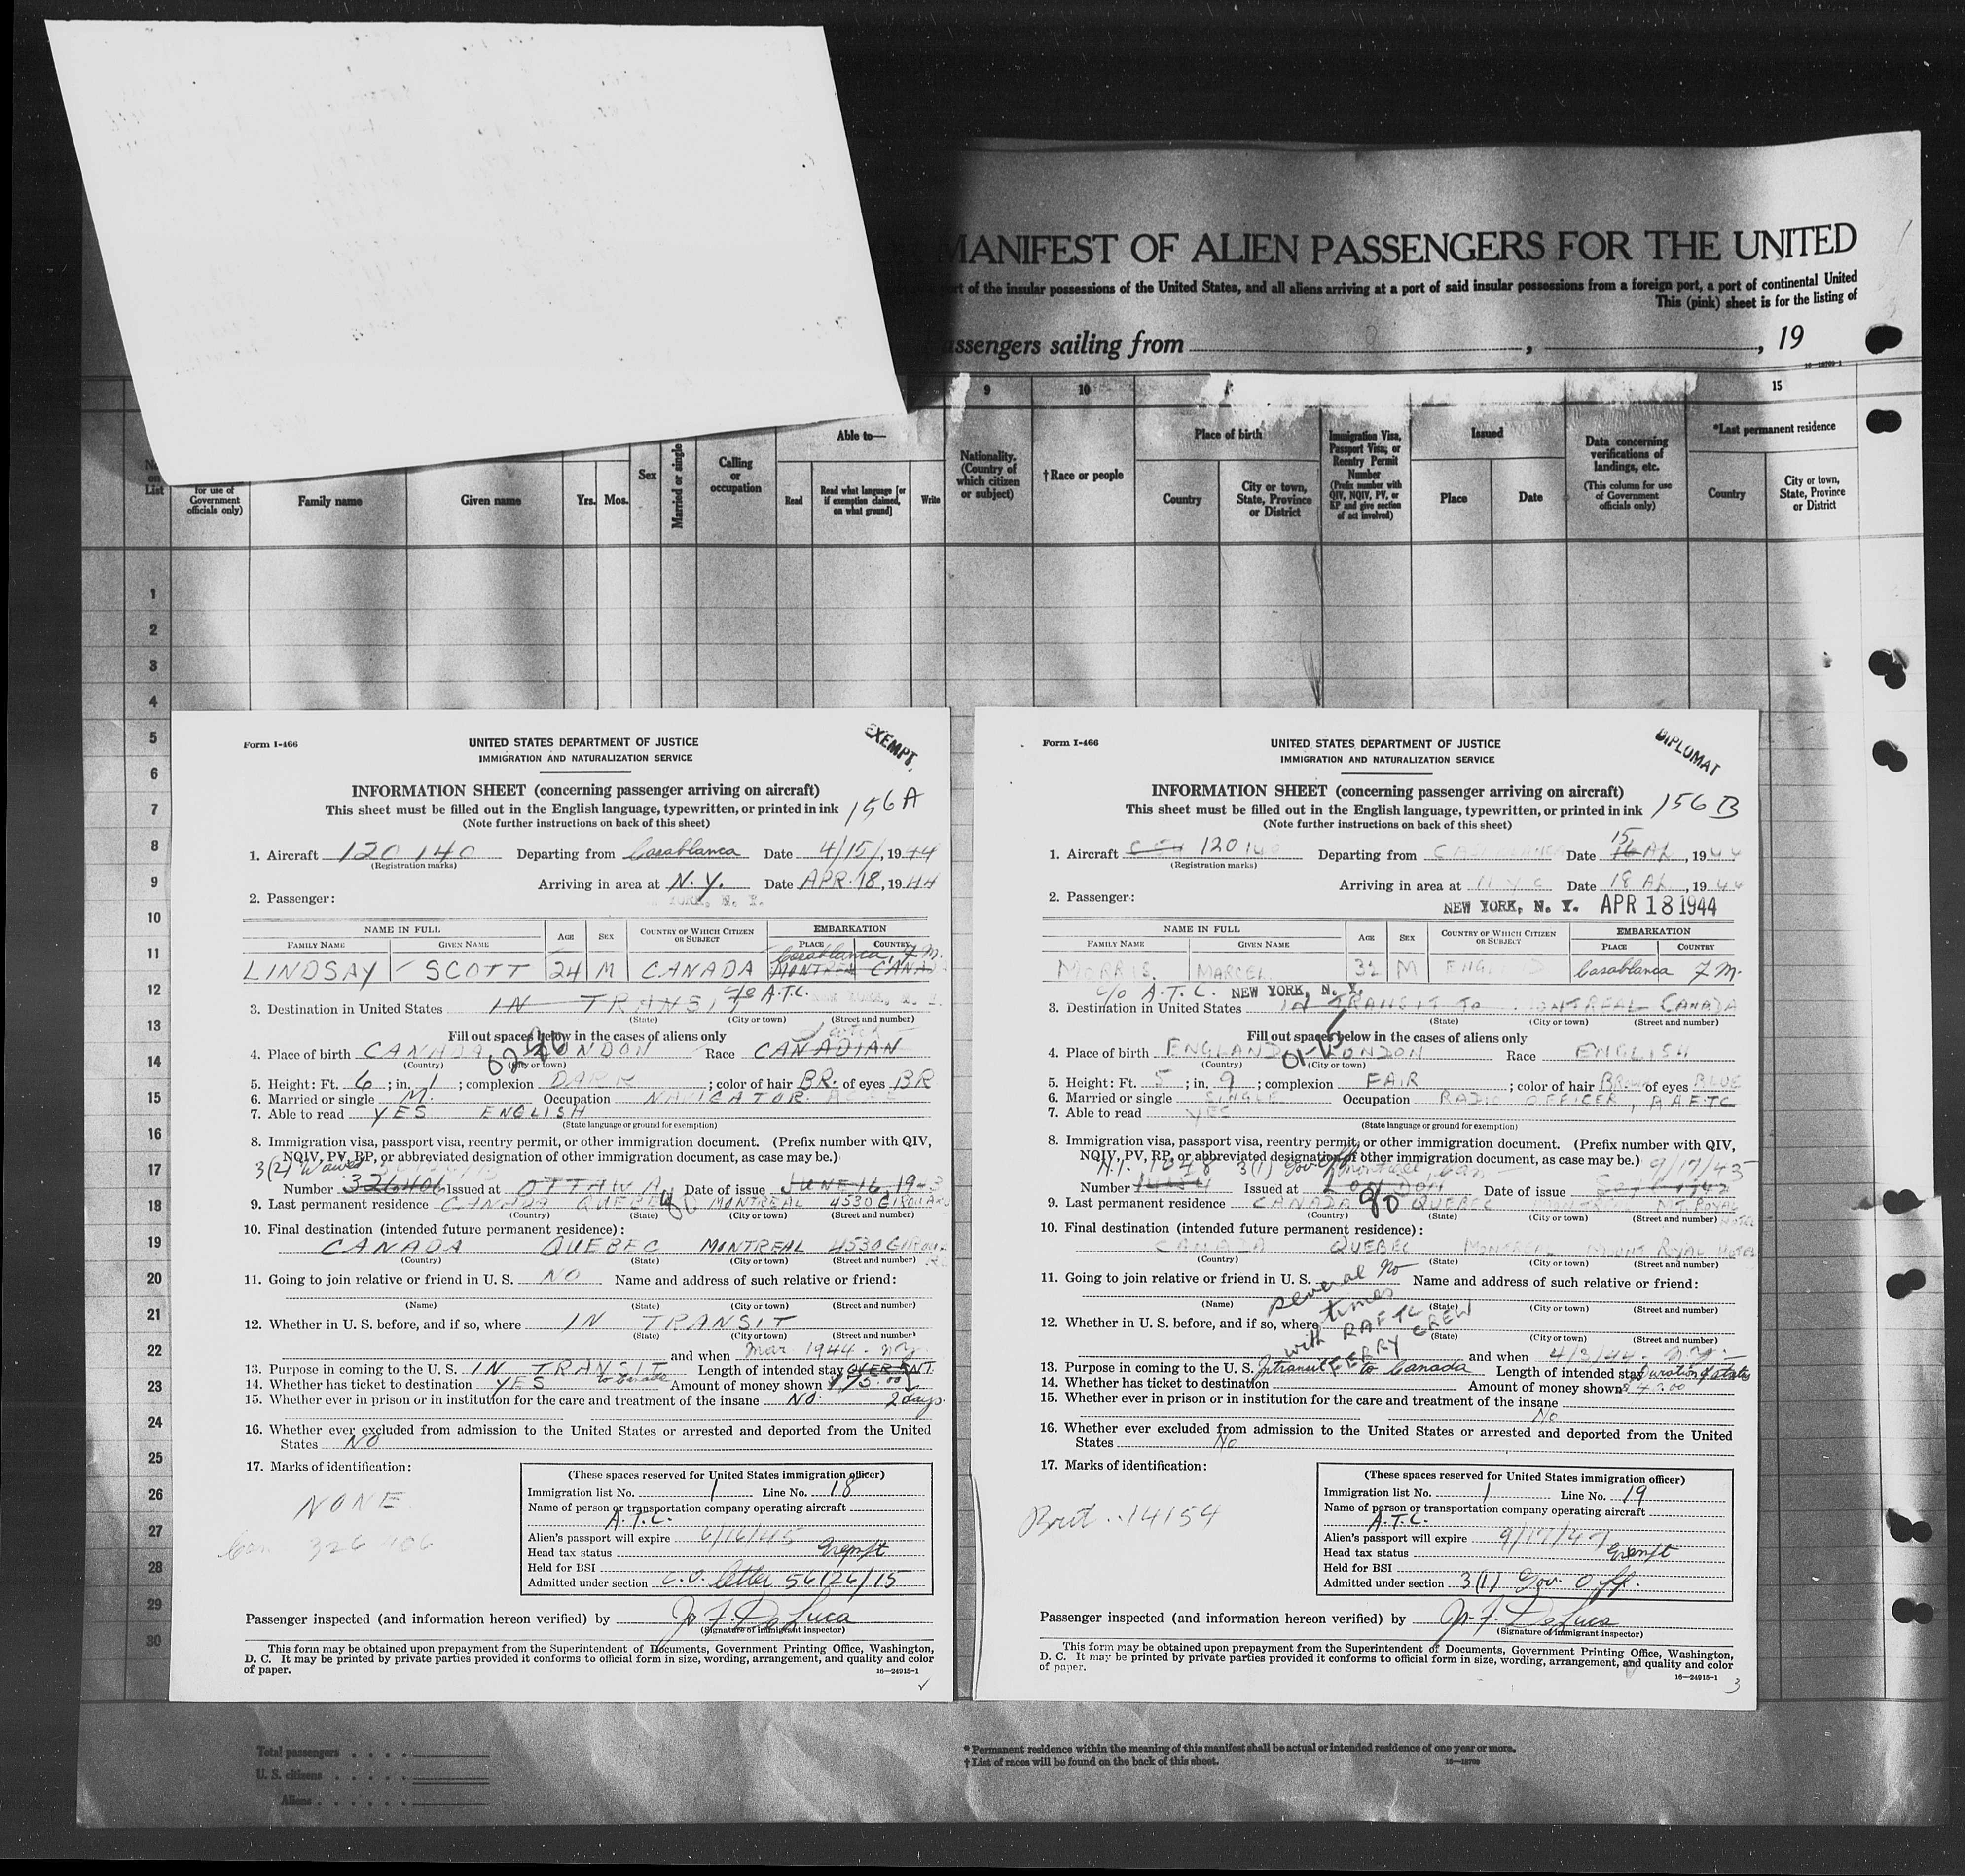 MANIFEST OF ALIEN PASSENGERS FOR THE UNITED
of the insular possessions of the United States, and all aliens arriving at a port of said insular possessions from a foreign port, a port of continental United
This (pink) sheet is for the listing of
assengers sailing from , , 19
16—18700-1
9 10 15
Able to— Place of birth Issued *Last permanent residence
List
for use of Government officials only)
Family name
Given name
Yrs. Mos.
Sex
Married or single
Calling or occupation
Read
Read what language [or if exemption claimed, on what ground]
Write
Nationality. (Country of which citizen or subject)
†Race or people
Country
City or town, State, Province or District
Immigration Visa, Passport Visa, or Reentry Permit Number (Prefix number with QIV, NQIV, PV, or RP and give section of act involved)
Place
Date
Data concerning verifications of landings, etc. (This column for use of Government officials only)
Country
City or town, State, Province or District
1
2
3
4
5
6
7
8
9
10
11
12
13
14
15
16
17
18
19
20
21
22
23
24
25
26
27
28
29
30
Form I-466
UNITED STATES DEPARTMENT OF JUSTICE
IMMIGRATION AND NATURALIZATION SERVICE
EXEMPT
INFORMATION SHEET (concerning passenger arriving on aircraft)
This sheet must be filled out in the English language, typewritten, or printed in ink 156 A
(Note further instructions on back of this sheet)
1. Aircraft 120140 Departing from Casablanca Date 4/15/, 1944
(Registration marks)
Arriving in area at N.Y. Date APR. 18, 1944
2. Passenger:
NAME IN FULL AGE SEX COUNTRY OF WHICH CITIZEN OR SUBJECT EMBARKATION
FAMILY NAME GIVEN NAME PLACE COUNTRY
Casablanca, F.M.
LINDSAY SCOTT 24 M CANADA MONTREAL CANADA
c/o A.T.C.
3. Destination in United States IN TRANSIT
(State) (City or town) (Street and number)
Fill out spaces below in the cases of aliens only
4. Place of birth CANADA LONDON Race CANADIAN
(Country) (City or town)
5. Height: Ft. 6 ; in. 1 ; complexion DARK ; color of hair BR. of eyes BR
6. Married or single M. Occupation NAVIGATOR
7. Able to read YES ENGLISH
(State language or ground for exemption)
8. Immigration visa, passport visa, reentry permit, or other immigration document. (Prefix number with QIV,
NQIV, PV, RP, or abbreviated designation of other immigration document, as case may be.)
3(2) Waived
Number 326406 Issued at OTTAWA Date of issue JUNE 16, 1943
9. Last permanent residence CANADA QUEBEC MONTREAL 4530 GIROUARD
(Country) (State) (City or town) (Street and number)
10. Final destination (intended future permanent residence):
CANADA QUEBEC MONTREAL 4530 GIROUARD
(Country) (State) (City or town) (Street and number)
11. Going to join relative or friend in U. S. NO Name and address of such relative or friend:
(Name) (State) (City or town) (Street and number)
12. Whether in U. S. before, and if so, where IN TRANSIT
(State) (City or town) (Street and number)
and when Mar 1944 - N.Y.
13. Purpose in coming to the U. S. IN TRANSIT to Canada Length of intended stay OVERNT.
14. Whether has ticket to destination YES Amount of money shown
15. Whether ever in prison or in institution for the care and treatment of the insane NO. 2 days
16. Whether ever excluded from admission to the United States or arrested and deported from the United
States NO
17. Marks of identification:
NONE
Can 326406
(These spaces reserved for United States immigration officer)
Immigration list No. 1 Line No. 18
Name of person or transportation company operating aircraft
A.T.C.
Alien's passport will expire 6/16/45
Head tax status Exempt
Held for BSI
Admitted under section C.O. letter 56126/15
Passenger inspected (and information hereon verified) by J. F. De Luca
(Signature of immigrant inspector)
This form may be obtained upon prepayment from the Superintendent of Documents, Government Printing Office, Washington,
D. C. It may be printed by private parties provided it conforms to official form in size, wording, arrangement, and quality and color
of paper. 16—24915-1
Form I-466
UNITED STATES DEPARTMENT OF JUSTICE
IMMIGRATION AND NATURALIZATION SERVICE
DIPLOMAT
INFORMATION SHEET (concerning passenger arriving on aircraft)
This sheet must be filled out in the English language, typewritten, or printed in ink 156 B
(Note further instructions on back of this sheet)
1. Aircraft 120140 Departing from CASABLANCA Date 15 16 AP, 1944
(Registration marks)
Arriving in area at NYC Date 18 AP, 1944
2. Passenger: NEW YORK, N. Y. APR 18 1944
NAME IN FULL AGE SEX COUNTRY OF WHICH CITIZEN OR SUBJECT EMBARKATION
FAMILY NAME GIVEN NAME PLACE COUNTRY
MORRIS MARCEL 32 M ENGLAND Casablanca F.M.
c/o A.T.C. NEW YORK, N. Y.
3. Destination in United States IN TRANSIT TO MONTREAL CANADA
(State) (City or town) (Street and number)
Fill out spaces below in the cases of aliens only
4. Place of birth ENGLAND LONDON Race ENGLISH
(Country) (City or town)
5. Height: Ft. 5 ; in. 9 ; complexion FAIR ; color of hair BROWN of eyes BLUE
6. Married or single SINGLE Occupation RADIO OFFICER, RAFTC
7. Able to read YES
(State language or ground for exemption)
8. Immigration visa, passport visa, reentry permit, or other immigration document. (Prefix number with QIV,
NQIV, PV, RP, or abbreviated designation of other immigration document, as case may be.)
1048 3(1) Gov Off Montreal, Can 9/17/43
Number 14154 Issued at LONDON Date of issue
9. Last permanent residence CANADA QUEBEC MONTREAL MT. ROYAL HOTEL
(Country) (State) (City or town) (Street and number)
10. Final destination (intended future permanent residence):
CANADA QUEBEC MONTREAL MOUNT ROYAL HOTEL
(Country) (State) (City or town) (Street and number)
11. Going to join relative or friend in U. S. No Name and address of such relative or friend:
(Name) (State) (City or town) (Street and number)
several times with RAFTC FERRY CREW
12. Whether in U. S. before, and if so, where
(State) (City or town) (Street and number)
and when 4/3/44 - N.Y.
13. Purpose in coming to the U. S. In transit to Canada Length of intended stay Duration of status
14. Whether has ticket to destination Amount of money shown
15. Whether ever in prison or in institution for the care and treatment of the insane
No
16. Whether ever excluded from admission to the United States or arrested and deported from the United
States No
17. Marks of identification:
Brit. 14154
(These spaces reserved for United States immigration officer)
Immigration list No. 1 Line No. 19
Name of person or transportation company operating aircraft
A.T.C.
Alien's passport will expire 9/17/47
Head tax status Exempt
Held for BSI
Admitted under section 3(1) Gov. Off.
Passenger inspected (and information hereon verified) by J. F. De Luca
(Signature of immigrant inspector)
This form may be obtained upon prepayment from the Superintendent of Documents, Government Printing Office, Washington,
D. C. It may be printed by private parties provided it conforms to official form in size, wording, arrangement, and quality and color
of paper. 16—24915-1
3
Total passengers
U. S. citizens
Aliens
* Permanent residence within the meaning of this manifest shall be actual or intended residence of one year or more.
† List of races will be found on the back of this sheet. 16—18700